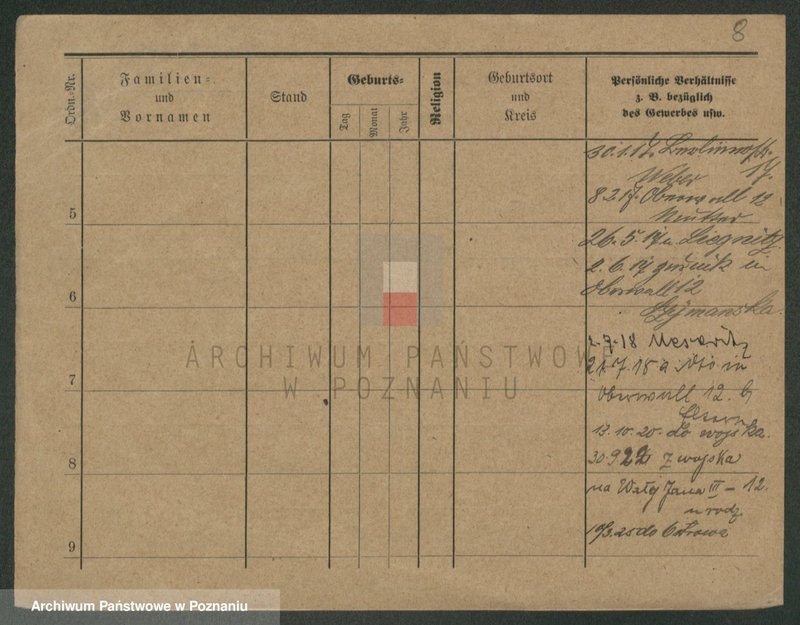 8
Ordn.-Nr.
Familien-
und
Vornamen
Stand
Geburts-
Tag
Monat
Jahr
Religion
Geburtsort
und
Kreis
Persönliche Verhältnisse
z. B. bezüglich
des Gewerbes usw.
30.1.17.
17.
Weber
8.2.17. Oberwall 12
5
26.5.17 n. Liegnitz
2.6.17 zurück in
Oberwall 12
6
Szymanska.
2.7.18 Meseritz
21.7.18 a. in
7
Oberwall 12. b
13.10.20. do wojska.
30.9 22 z wojska
8
na Wały Jana III – 12.
u rodz.
10/3.25 do Ostrowa
9
ARCHIWUM PAŃSTWOWE
W POZNANIU
Archiwum Państwowe w Poznaniu